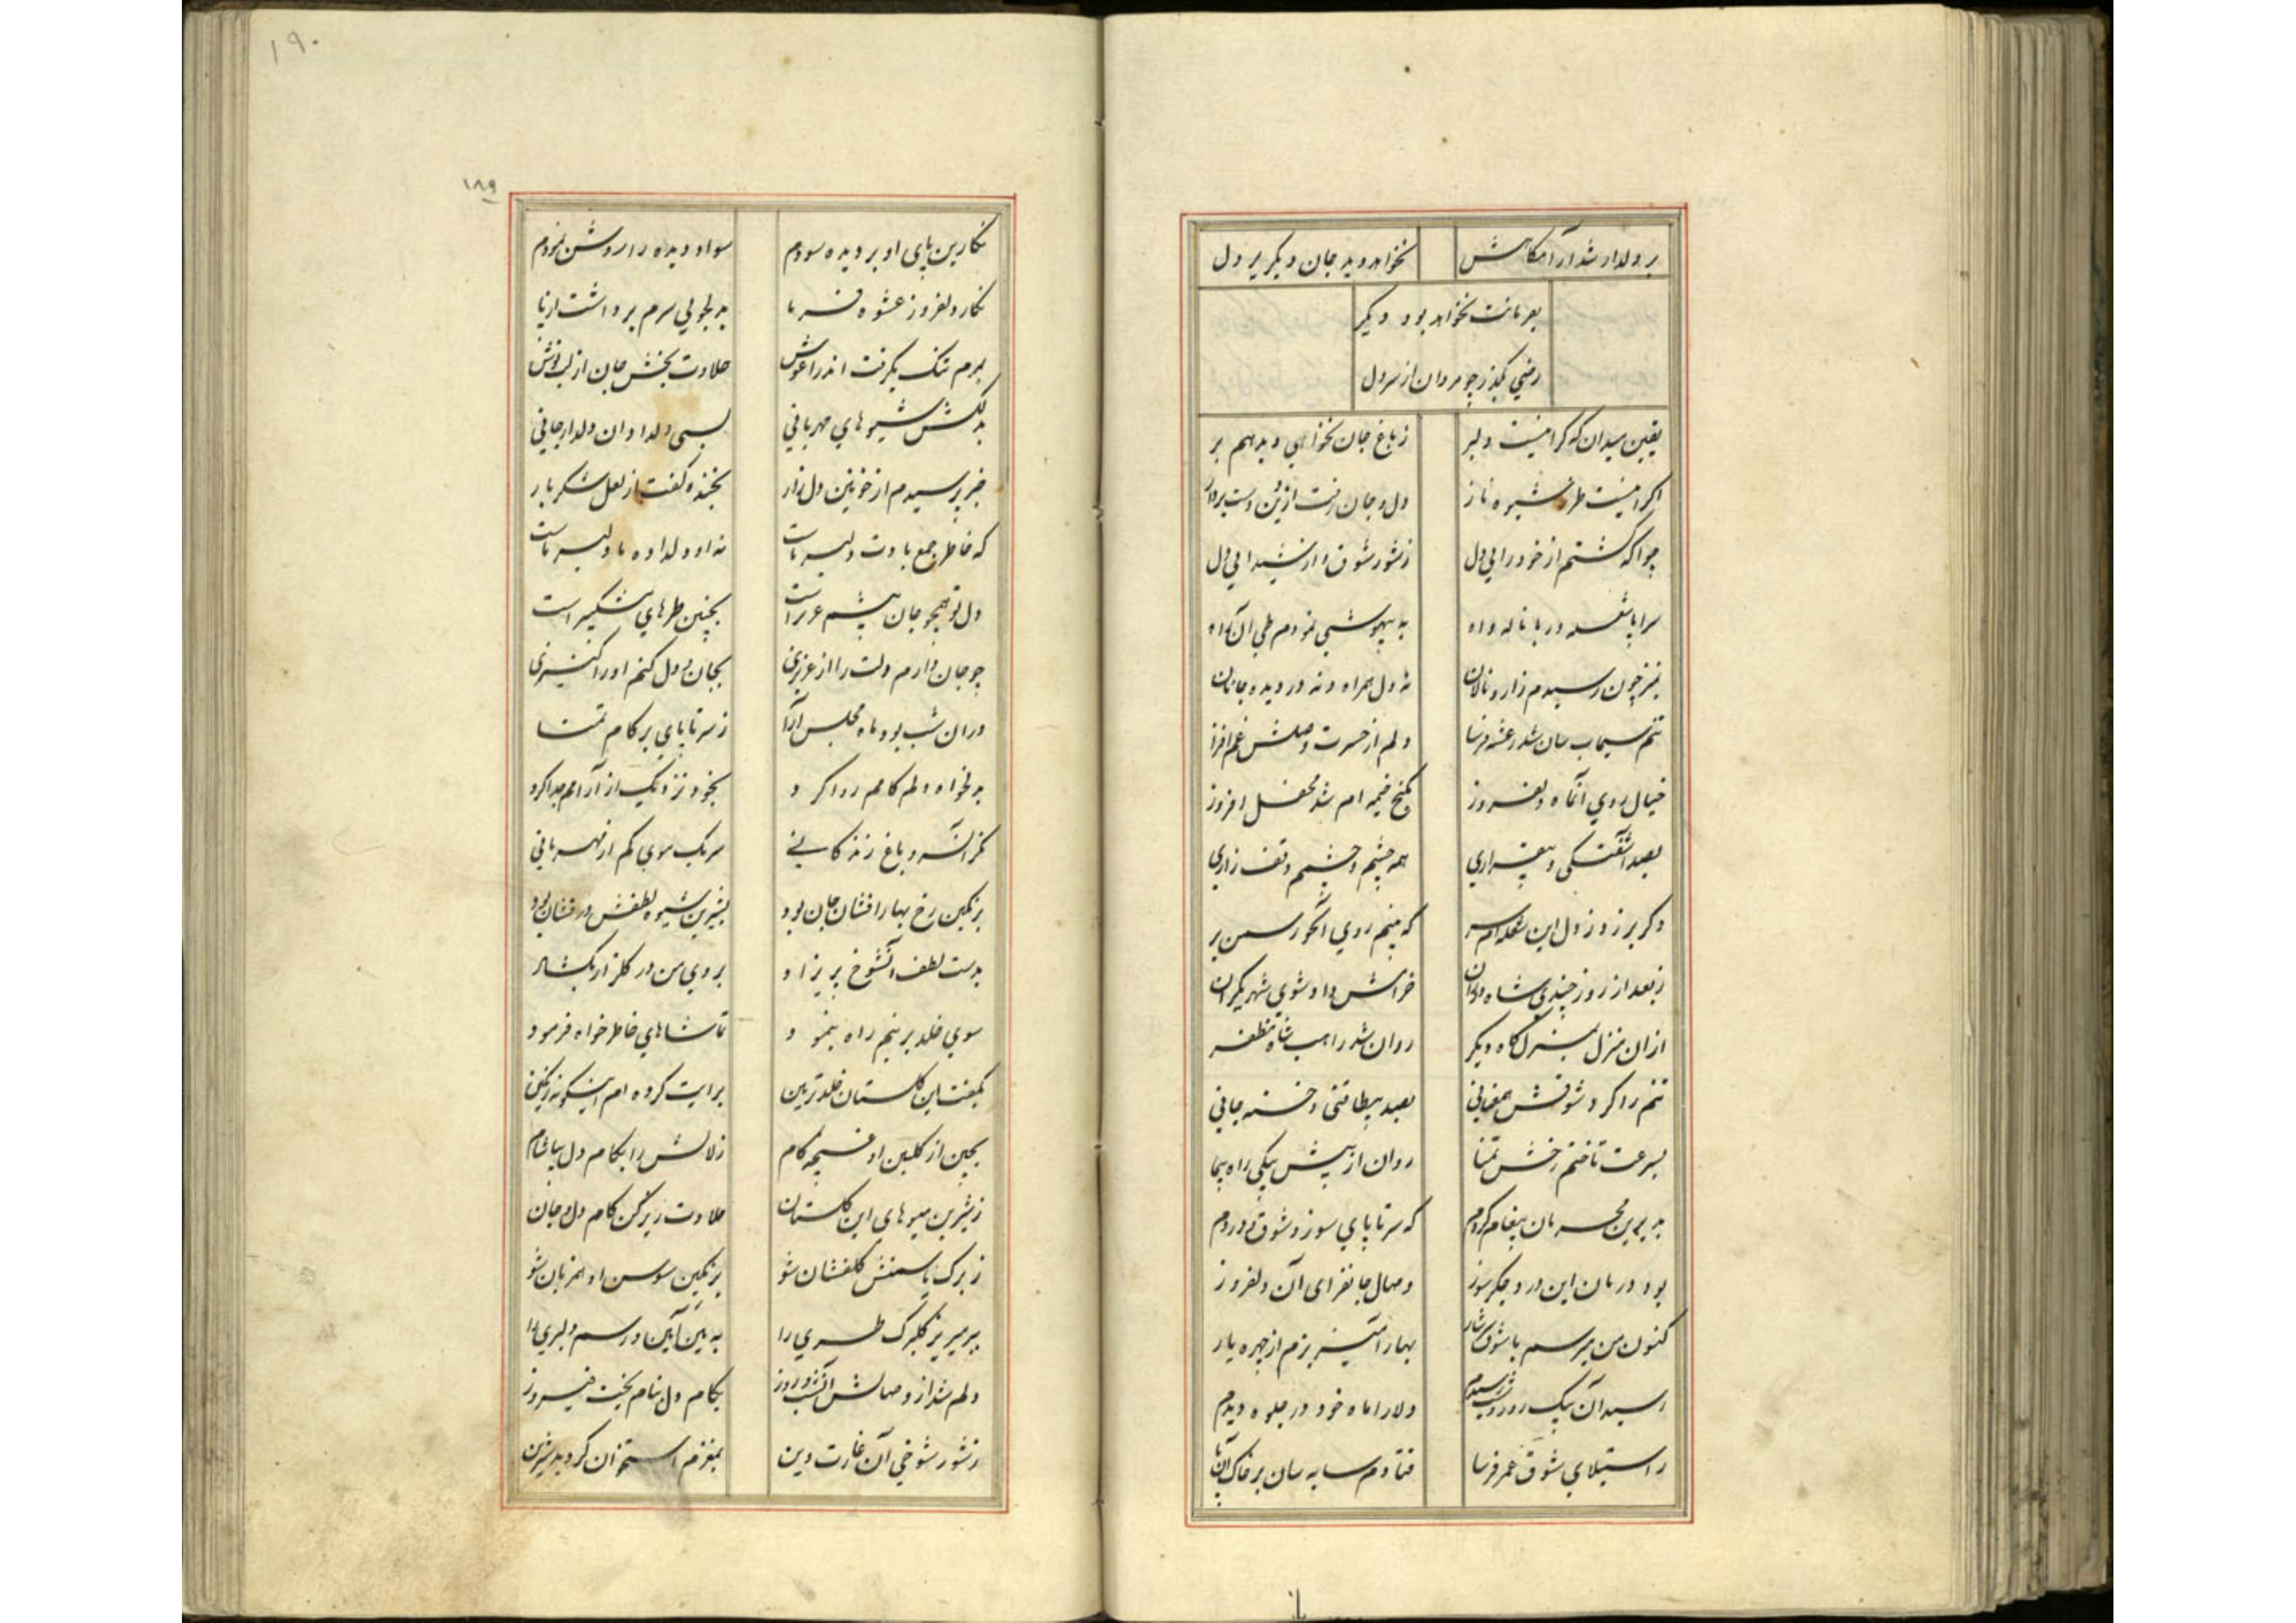 بر دلدار شد آرامگاهش نخواهد دید جان دیگر بر دل
بعرمانت نخواهد بود دیگر
رضی بگذر چو مردان از سر دل
یقین میدان که گر اینست دلبر ز باغ جان نخواهی دید هم بر
اگر اینست طرز شیوه ناز دل و جان رفت ازین دست بردار
چو آگه گشتم از خود رایی دل ز شور شوق و از شیدایی دل
سراپا شعله در با ناله و آه به بیهوشی نمودم طی آن راه
چون رسیدم زار و نالان نه دل همراه و نه در دیده جانان
تنم سیماب سان شد رعشه فرسا دلم از حسرت وصلش غم افزا
خیال روی آنماه دلفروز کنج خیمه ام شد محفل افروز
بصد آشفتگی و بیقراری همه چشم و چشمم وقف زاری
دگر بر زد ز دل این شعله ام سر که بینم روی آنحور سمن بر
ز بعد از روز چندی شاه دوران خرامش داد سوی شهر یکران
ازان منزل بمنزلگاه دیگر روان شد راهب شاه مظفر
تنم را کرد شوقش همعنانی بصد بیطاقتی و خسته جانی
بسرعت تاختم رخش تمنا روان از پیش پیکی راه پیما
به پرین محرمان پیغام کردم که سر تا پای سوز و شوق و دردم
بود درمان این درد جگر سوز وصال جانفزای آن دلفروز
کنون من میرسم با شوق سرشار بهار آمیز بزم از چهره یار
رسید آن پیک دلارا ماه خود در جلوه دیدم
ز استیلای شوق عمر فرسا فتادم سایه سان بر خاک آن پا
۱۹۰
۱۸۹
نگارین پای او بر دیده سودم سواد دیده را روشن نمودم
نگار دلفروز عشوه فرما بدلجویی سرم برداشت از پا
برم تنک بگرفت اندر آغوش حلاوت بخش جان از لب نوش
بدلکش شیوهای مهربانی بسی دلداد آن دلدار جانی
خبر پرسیدم از خونین دل زار بخنده گفت از لعل شکر بار
که خاطر جمع بادت دلبر ماست نه او دلداده ما دلبر ماست
دل تو همچو جان پیشم عزیز است بچنین طرهای مشکبیز است
چو جان دارم دلت را از عزیزی بجان و دل کنم او را کنیزی
دران شب بود ماه مجلس آرا ز سر تا پای بر کام تمنا
بدلخواه دلم کامم روا کرد بخود نزدیک از آرامم جدا کرد
کزان سرو باغ زندگانی سر یک موی کم از مهربانی
برنگین رخ بهار افشان جان بود بشیرین شیوه لطفش در فشان بود
بدست لطف آنشوخ پریزاد بروی من در گلزار بگشاد
سوی خلد برینم راه بنمود تماشاهای خاطر خواه فرمود
بگفت این گلستان خلد تزیین برایت کرده ام اینگونه رنگین
بچین از گلبن او غنچه کام زلالش را بکام دل بیاشام
ز شیرین میوهای این گلستان حلاوت ریز کن کام دل و جان
ز برک یاسمنش گلفشان شو برنگین سوسن او همزبان شو
ببین آیین و رسم دلبری را
دلم شد از وصالش بکام دل بنام بخت فیروز
ز شور شوخی آن غارت دین بمغزم استخوان گردید شیرین